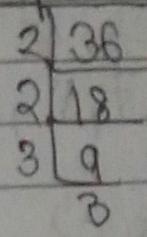 2 36
2 18
3 9
3